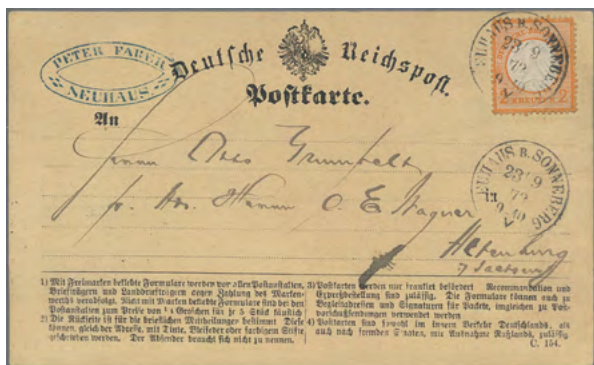 PETER FABER
NEUHAUS
Deutsche Reichspost.
Postkarte.
NEUHAUS B. SONNEBERG
23 9
72
9-10
V
2 KREUZER 2
An
Herrn Otto
pr. Adr. Herrn O. E. Wagner
in
Altenburg
NEUHAUS B. SONNEBERG
23 9
72
9-10
V
1) Mit Freimarken beklebte Formulare werden von allen Postanstalten,
Briefträgern und Landbriefträgern gegen Zahlung des Marken-
werths verabfolgt. Nicht mit Marken beklebte Formulare sind bei den
Postanstalten zum Preise von ¼ Groschen für je 5 Stück käuflich
2) Die Rückseite ist für die brieflichen Mittheilungen bestimmt Diese
können, gleich der Adresse, mit Tinte, Bleifeder oder farbigem Stifte
geschrieben werden. Der Absender braucht sich nicht zu nennen.
3) Postkarten werden nur frankirt befördert Recommandation und
Expreßbestellung sind zulässig. Die Formulare können auch zu
Begleitadressen und Signaturen für Packete, imgleichen zu Post-
vorschußsendungen verwendet werden
4) Postkarten sind sowohl im innern Verkehr Deutschlands, als
auch nach fremden Staaten, mit Ausnahme Rußlands, zulässig
C. 154.